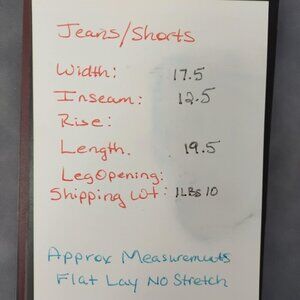 Jeans/Shorts
Width: 17.5
Inseam: 12.5
Rise:
Length. 19.5
Leg Opening:
Shipping Wt: 1LBS 10
Approx Measurements
Flat Lay No Stretch